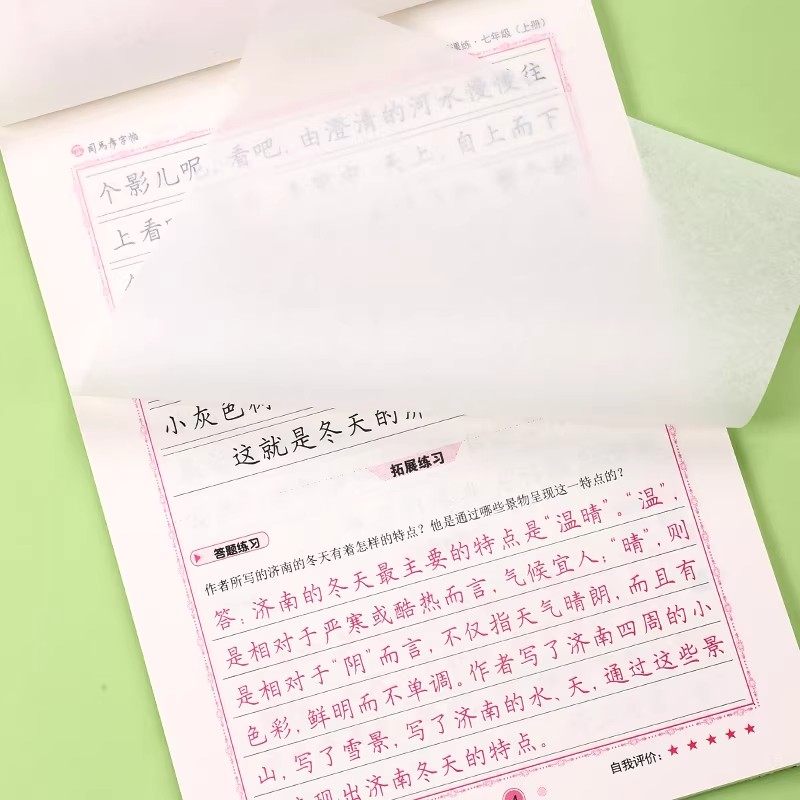 课练·七年级（上册）
司马彦字帖
个影儿呢，看吧，由澄清的河水慢慢往
上看 天上，自上而下
小灰色树
这就是冬天的济
拓展练习
答题练习
作者所写的济南的冬天有着怎样的特点？他是通过哪些景物呈现这一特点的？
答：济南的冬天最主要的特点是“温晴”。“温”，
是相对于严寒或酷热而言，气候宜人；“晴”，则
是相对于“阴”而言，不仅指天气晴朗，而且有
色彩，鲜明而不单调。作者写了济南四周的小
山，写了雪景，写了济南的水、天，通过这些景
现出济南冬天的特点。
自我评价：★★★★★